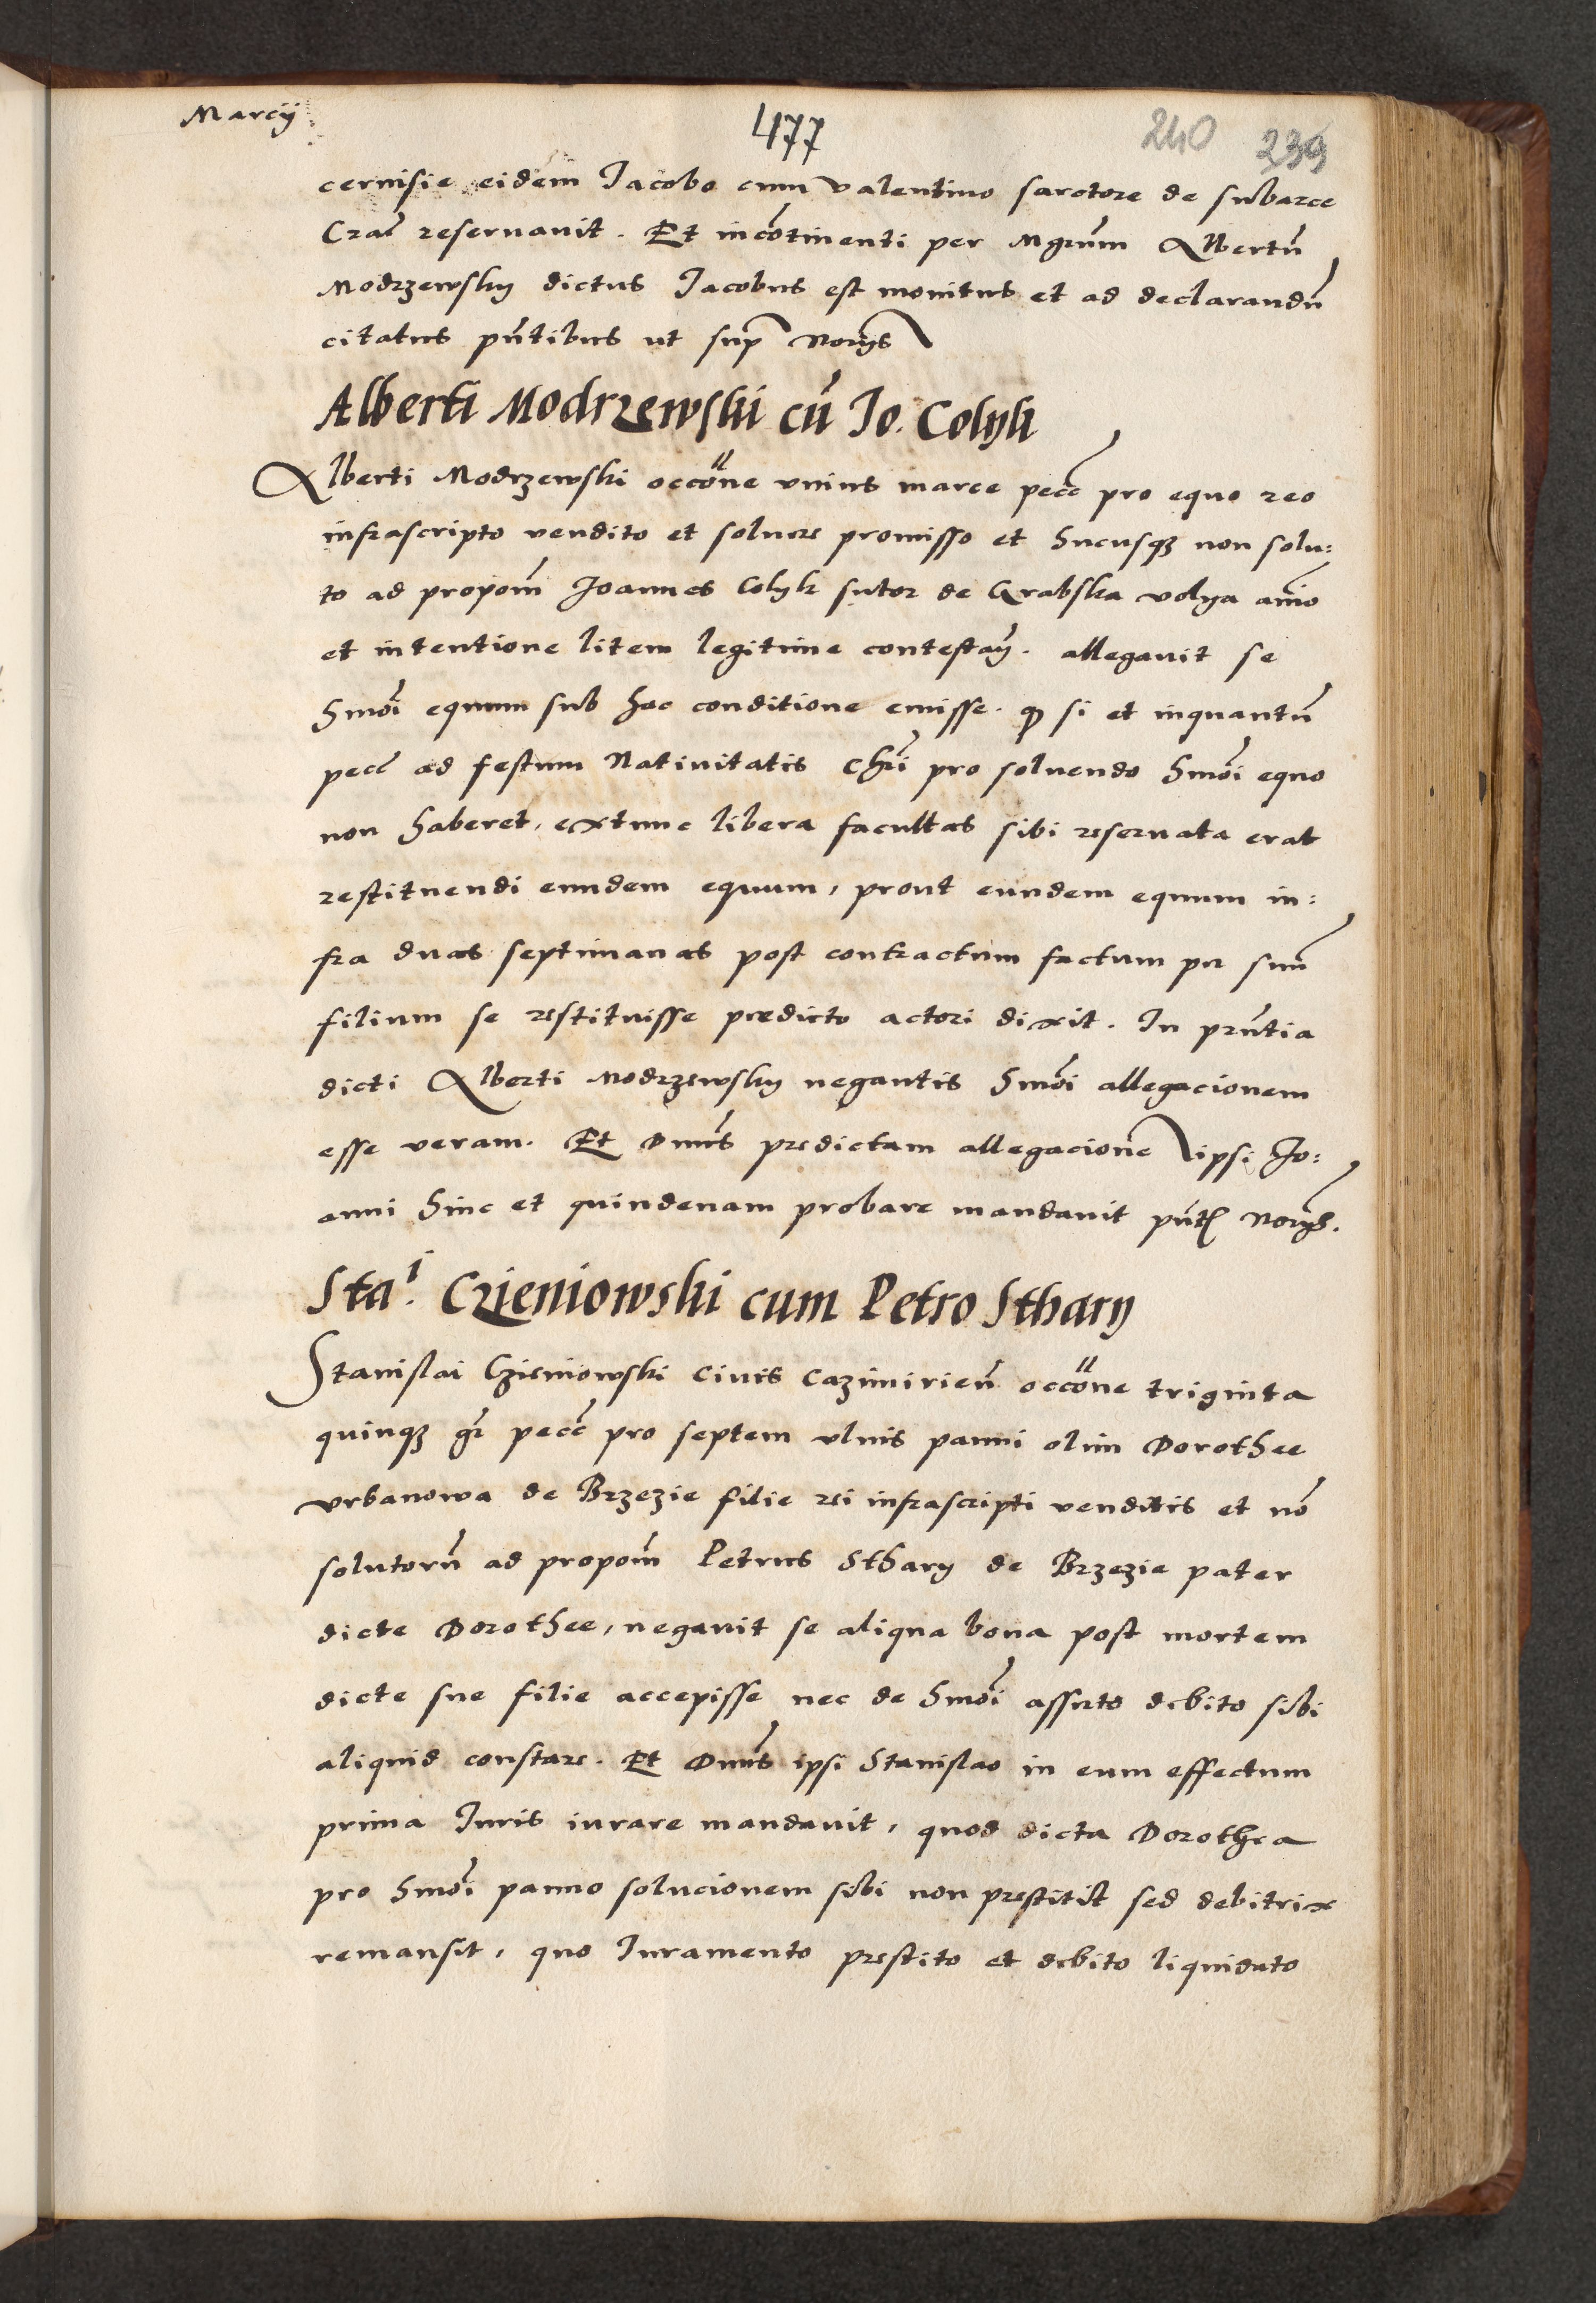 Marcÿ
477
240 239
cervisie eidem Jacobo cum Valentino sarctore de subarce
Crac̃ reservavit. Et incõtinenti per Mgrũm Albertũ
Modrzewsky dictus Jacobus est monitus et ad declarandũ
citatus pñtibus ut sup Norÿs
Alberti Modrzewski cũ Jo. Colyk
Alberti Modrzewski occõne unius marce pecc̃ pro equo reo
infrascripto vendito et solvere promisso et hucusqꝫ non solu:
to ad propoñ Joannes Colyk sutor de Grabska volya aĩo
et intentione litem legitime contestañ. allegavit se
hmõi equum sub hac conditione emisse. ꝙ si et inquantũ
pecc̃ ad festum Nativitatis Chri̇̃ pro solvendo hmõi equo
non haberet, extunc libera facultas sibi reservata erat
restituendi eundem equum, prout eundem equum in:
fra duas septimanas post contractum factum per suũ
filium se restituisse predicto actori dixit. In prñtia
dicti Alberti Modrzewsky negantis hmõi allegacionem
esse veram. Et Dnũs predictam allegacione ipsi Jo:
anni hinc et quindenam probare mandavit pñt Norÿs.
Staĩ. Czieniowski cum Petro Sthary
Stanislai Czieniowski civis Cazimirieñ occõne triginta
quinqꝫ gr̃ pecc̃ pro septem ulnis panni olim Dorothee
Urbanowa de Brzezie filie rei infrascripti venditis et nõ
solutorũ ad propoñ Petrus Sthary de Brzezie pater
dicte Dorothee, negavit se aliqua bona post mortem
dicte sue filie accepisse nec de hmõi asserto debito sibi
aliquid constare. Et Dnũs ipsi Stanislao in eum effectum
prima Juris iurare mandavit, quod dicta Dorothea
pro hmõi panno solucionem sibi non prestitit sed debitrix
remansit, quo Juramento prestito et debito liquidato